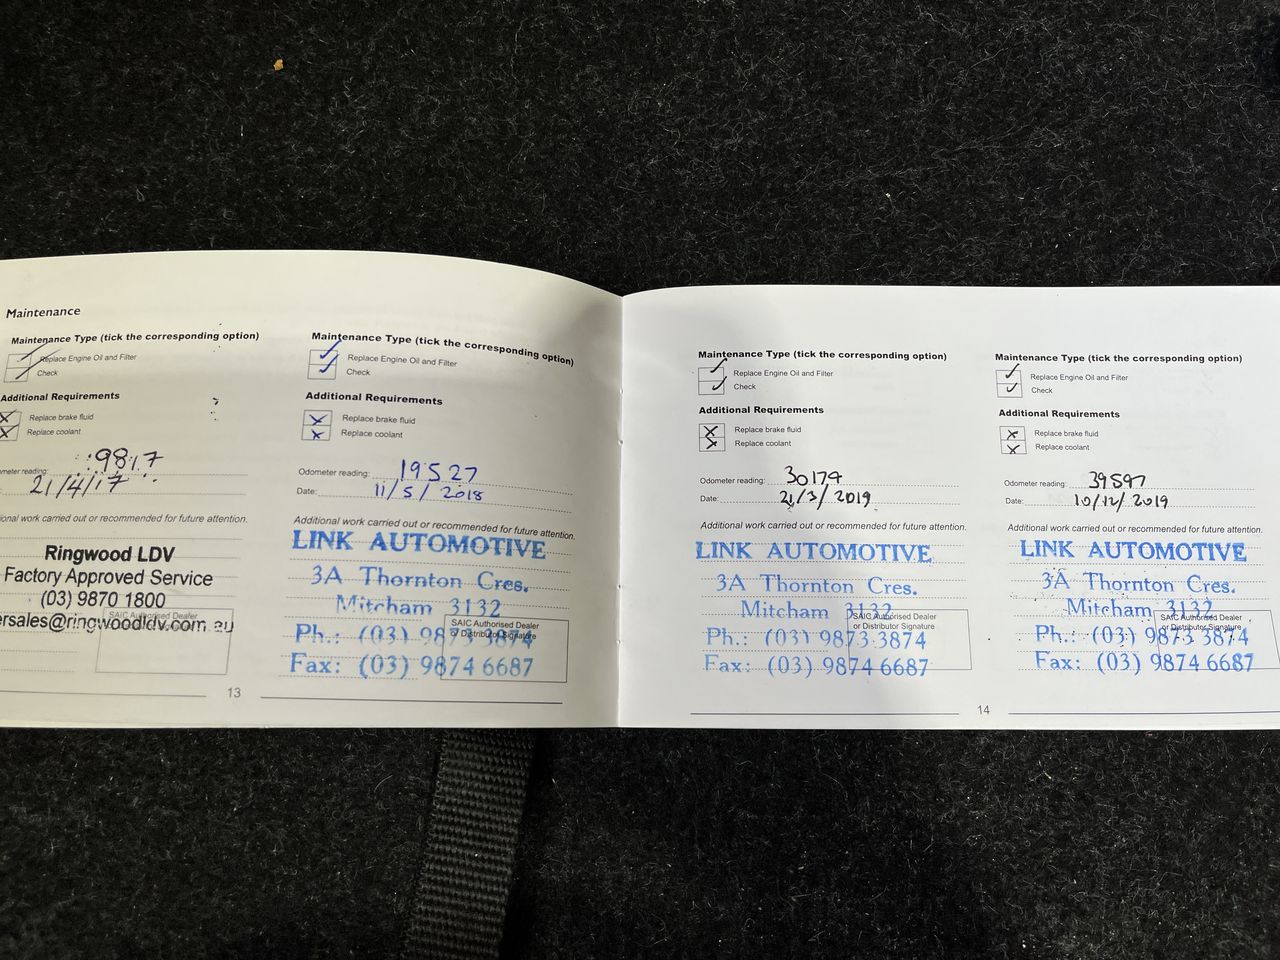 Maintenance
Maintenance Type (tick the corresponding option)
Replace Engine Oil and Filter
Check
Additional Requirements
Replace brake fluid
Replace coolant
meter reading: 9817
21/4/17
ional work carried out or recommended for future attention.
Ringwood LDV
Factory Approved Service
(03) 9870 1800
ersales@ringwoodldv.com.au
SAIC Authorised Dealer
13
Maintenance Type (tick the corresponding option)
Replace Engine Oil and Filter
Check
Additional Requirements
Replace brake fluid
Replace coolant
Odometer reading: 19527
Date: 11/5/2018
Additional work carried out or recommended for future attention.
LINK AUTOMOTIVE
3A Thornton Cres.
Mitcham 3132
Ph.: (03) 9873 3874
Fax: (03) 9874 6687
SAIC Authorised Dealer
or Distributor Signature
Maintenance Type (tick the corresponding option)
Replace Engine Oil and Filter
Check
Additional Requirements
Replace brake fluid
Replace coolant
Odometer reading: 30179
Date: 21/3/2019
Additional work carried out or recommended for future attention.
LINK AUTOMOTIVE
3A Thornton Cres.
Mitcham 3132
Ph.: (03) 9873 3874
Fax: (03) 9874 6687
SAIC Authorised Dealer
or Distributor Signature
14
Maintenance Type (tick the corresponding option)
Replace Engine Oil and Filter
Check
Additional Requirements
Replace brake fluid
Replace coolant
Odometer reading: 39597
Date: 10/12/2019
Additional work carried out or recommended for future attention.
LINK AUTOMOTIVE
3A Thornton Cres.
Mitcham 3132
Ph.: (03) 9873 3874
Fax: (03) 9874 6687
SAIC Authorised Dealer
or Distributor Signature